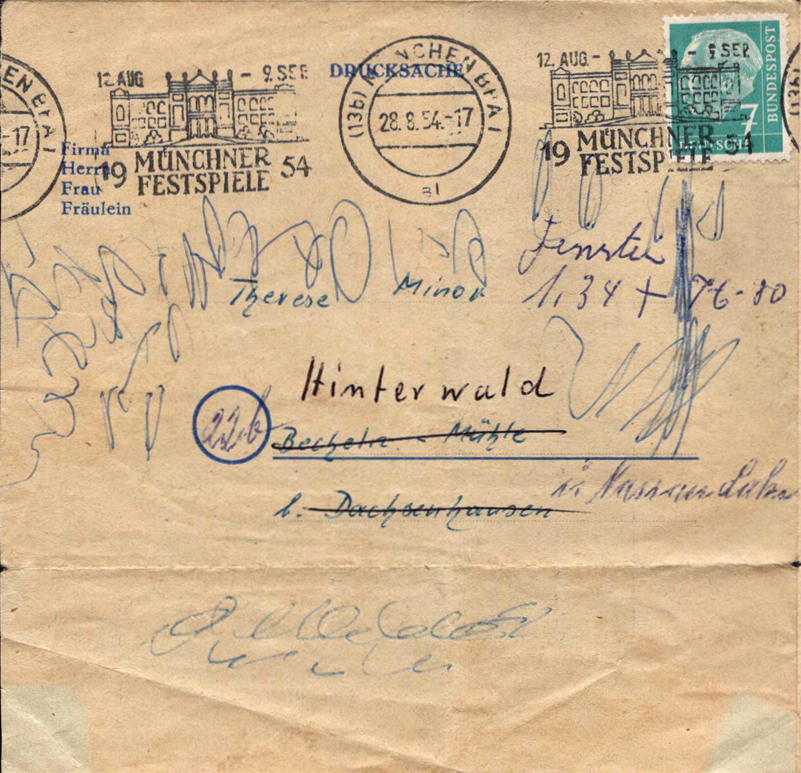 12. AUG. - 9. SEP.
1954 MÜNCHNER FESTSPIELE
DRUCKSACHE
(13b) MÜNCHEN BPA 1
28.8.54.-17
al
12. AUG. - 9. SEP.
1954 MÜNCHNER FESTSPIELE
7
DEUTSCHE
BUNDESPOST
Firma
Herrn
Frau
Fräulein
Fenster
Therese Minor
1,34 + 76-80
Hinterwald
22b
Becheln - Mühle
b. Dachsenhausen
Nassau Lahn